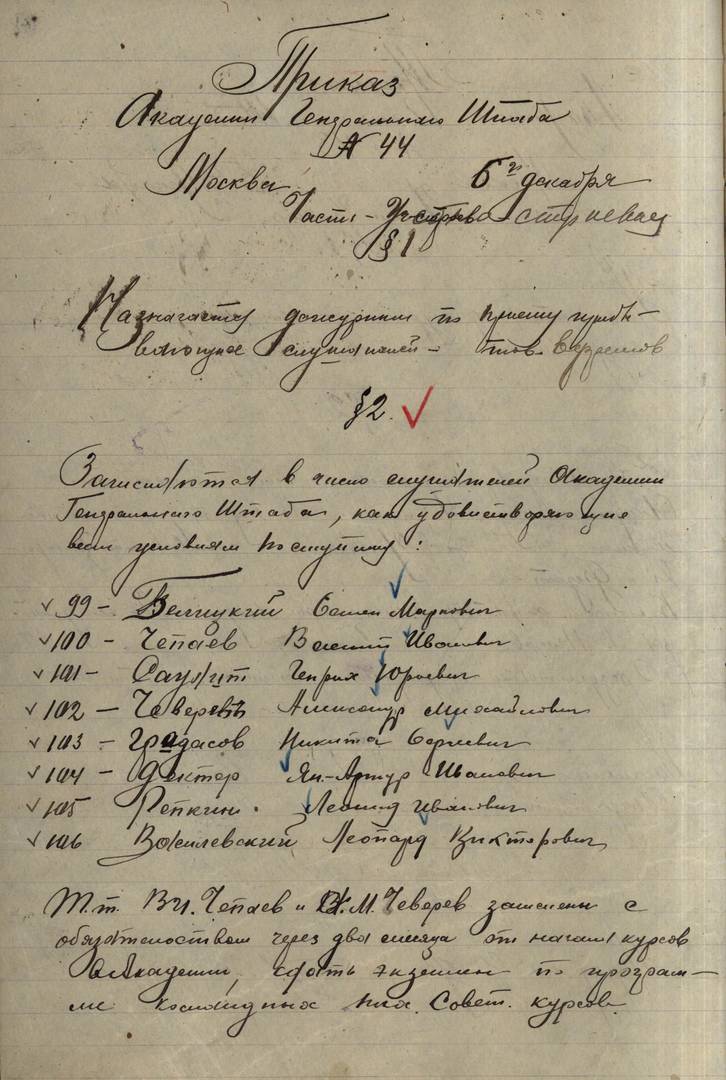 Приказ
Академии Генерального Штаба
№ 44
Москва 6го декабря
Часть
§1
Назначается дежурным по приему прибы-
вающих слушателей - тов.
§2.
Зачисляются в число слушателей Академии
Генерального Штаба, как удовлетворяющие
всем условиям поступ. :
99 - Белицкий Семен Маркович
100 - Чепаев Василий Иванович
101 - Генрих Юрьевич
102 - Чеверев Александр Михайлович
103 - Градасов Никита Сергиевич
104 - Дектер Ян-Артур Иванович
105 Репкин. Леонид Иванович
106 Василевский Леопард Викторович
Т.т. В.И. Чепаев и М. Чеверев зачислены с
обязательством через два месяца от начала курсов
Академии, сдать экзамен по програм-
ме командных Совет. курсов